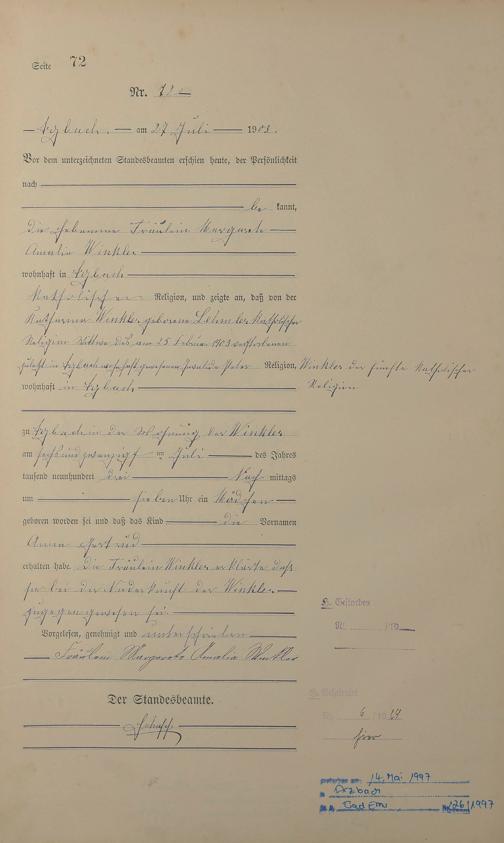 Seite 72
Nr. 72
Arzbach am 27 Juli 1903.
Vor dem unterzeichneten Standesbeamten erschien heute, der Persönlichkeit
nach
be kannt,
die Hebamme Fräulein Margareta
Amalia Winkler
wohnhaft in Arzbach
Katholischen Religion, und zeigte an, daß von der
Katharina Winkler geborene Katholischer
Religion Wittwe des am 25 Februar 1903 verstorbenen
zuletzt in Arzbach wohnhaft gewesenen Invalide Peter Religion, Winkler der fünfte Katholischer
wohnhaft in Arzbach Religion
zu Arzbach in der Wohnung der Winkler
am sechsundzwanzigsten Juli des Jahres
tausend neunhundert drei Nach mittags
um sieben Uhr ein Mädchen
geboren worden sei und daß das Kind die Vornamen
Anna Gertrud
erhalten habe. Die Fräulein Winkler erklärte daß
sie bei der Niederkunft der Winkler
zugegen gewesen sei.
Vorgelesen, genehmigt und unterschrieben
Fräulein Margareta Amalia Winkler
Der Standesbeamte.
H. Gestorben
Nr. /19
H. Geheiratet
Nr. 6 /19 27
14. Mai 1997
Arzbach
Bad Ems 126/1997